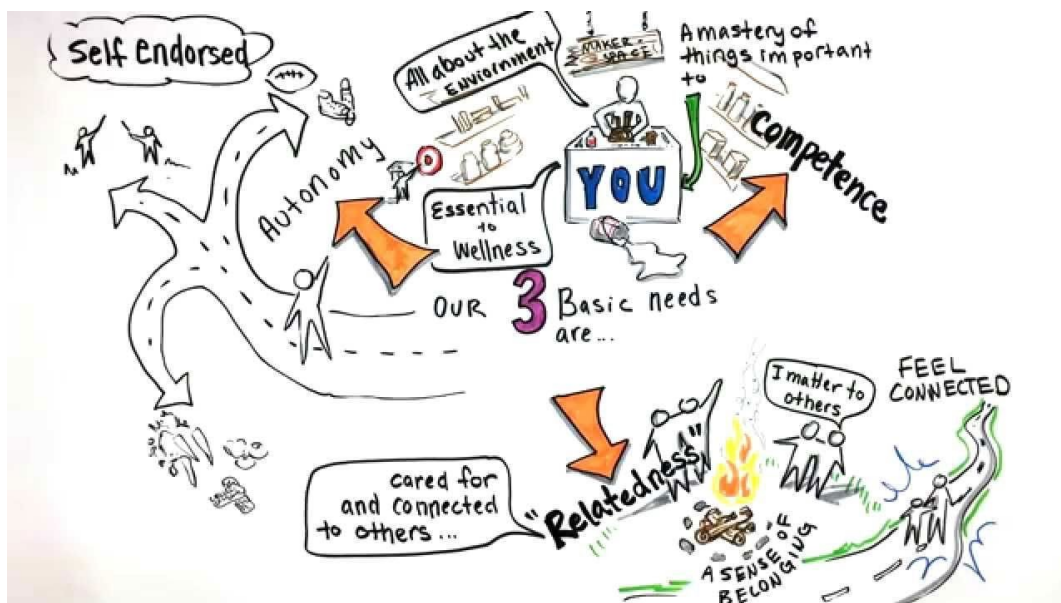 Self Endorsed
All about the
ENVIORNMENT
MAKER-
SPACE
A mastery of
things important
to
YOU
competence
Autonomy
Essential
to
Wellness
OUR 3 Basic needs
are...
cared for
and connected
to others...
"Relatedness"
I matter to
others
FEEL
CONNECTED
A SENSE OF
BELONGING